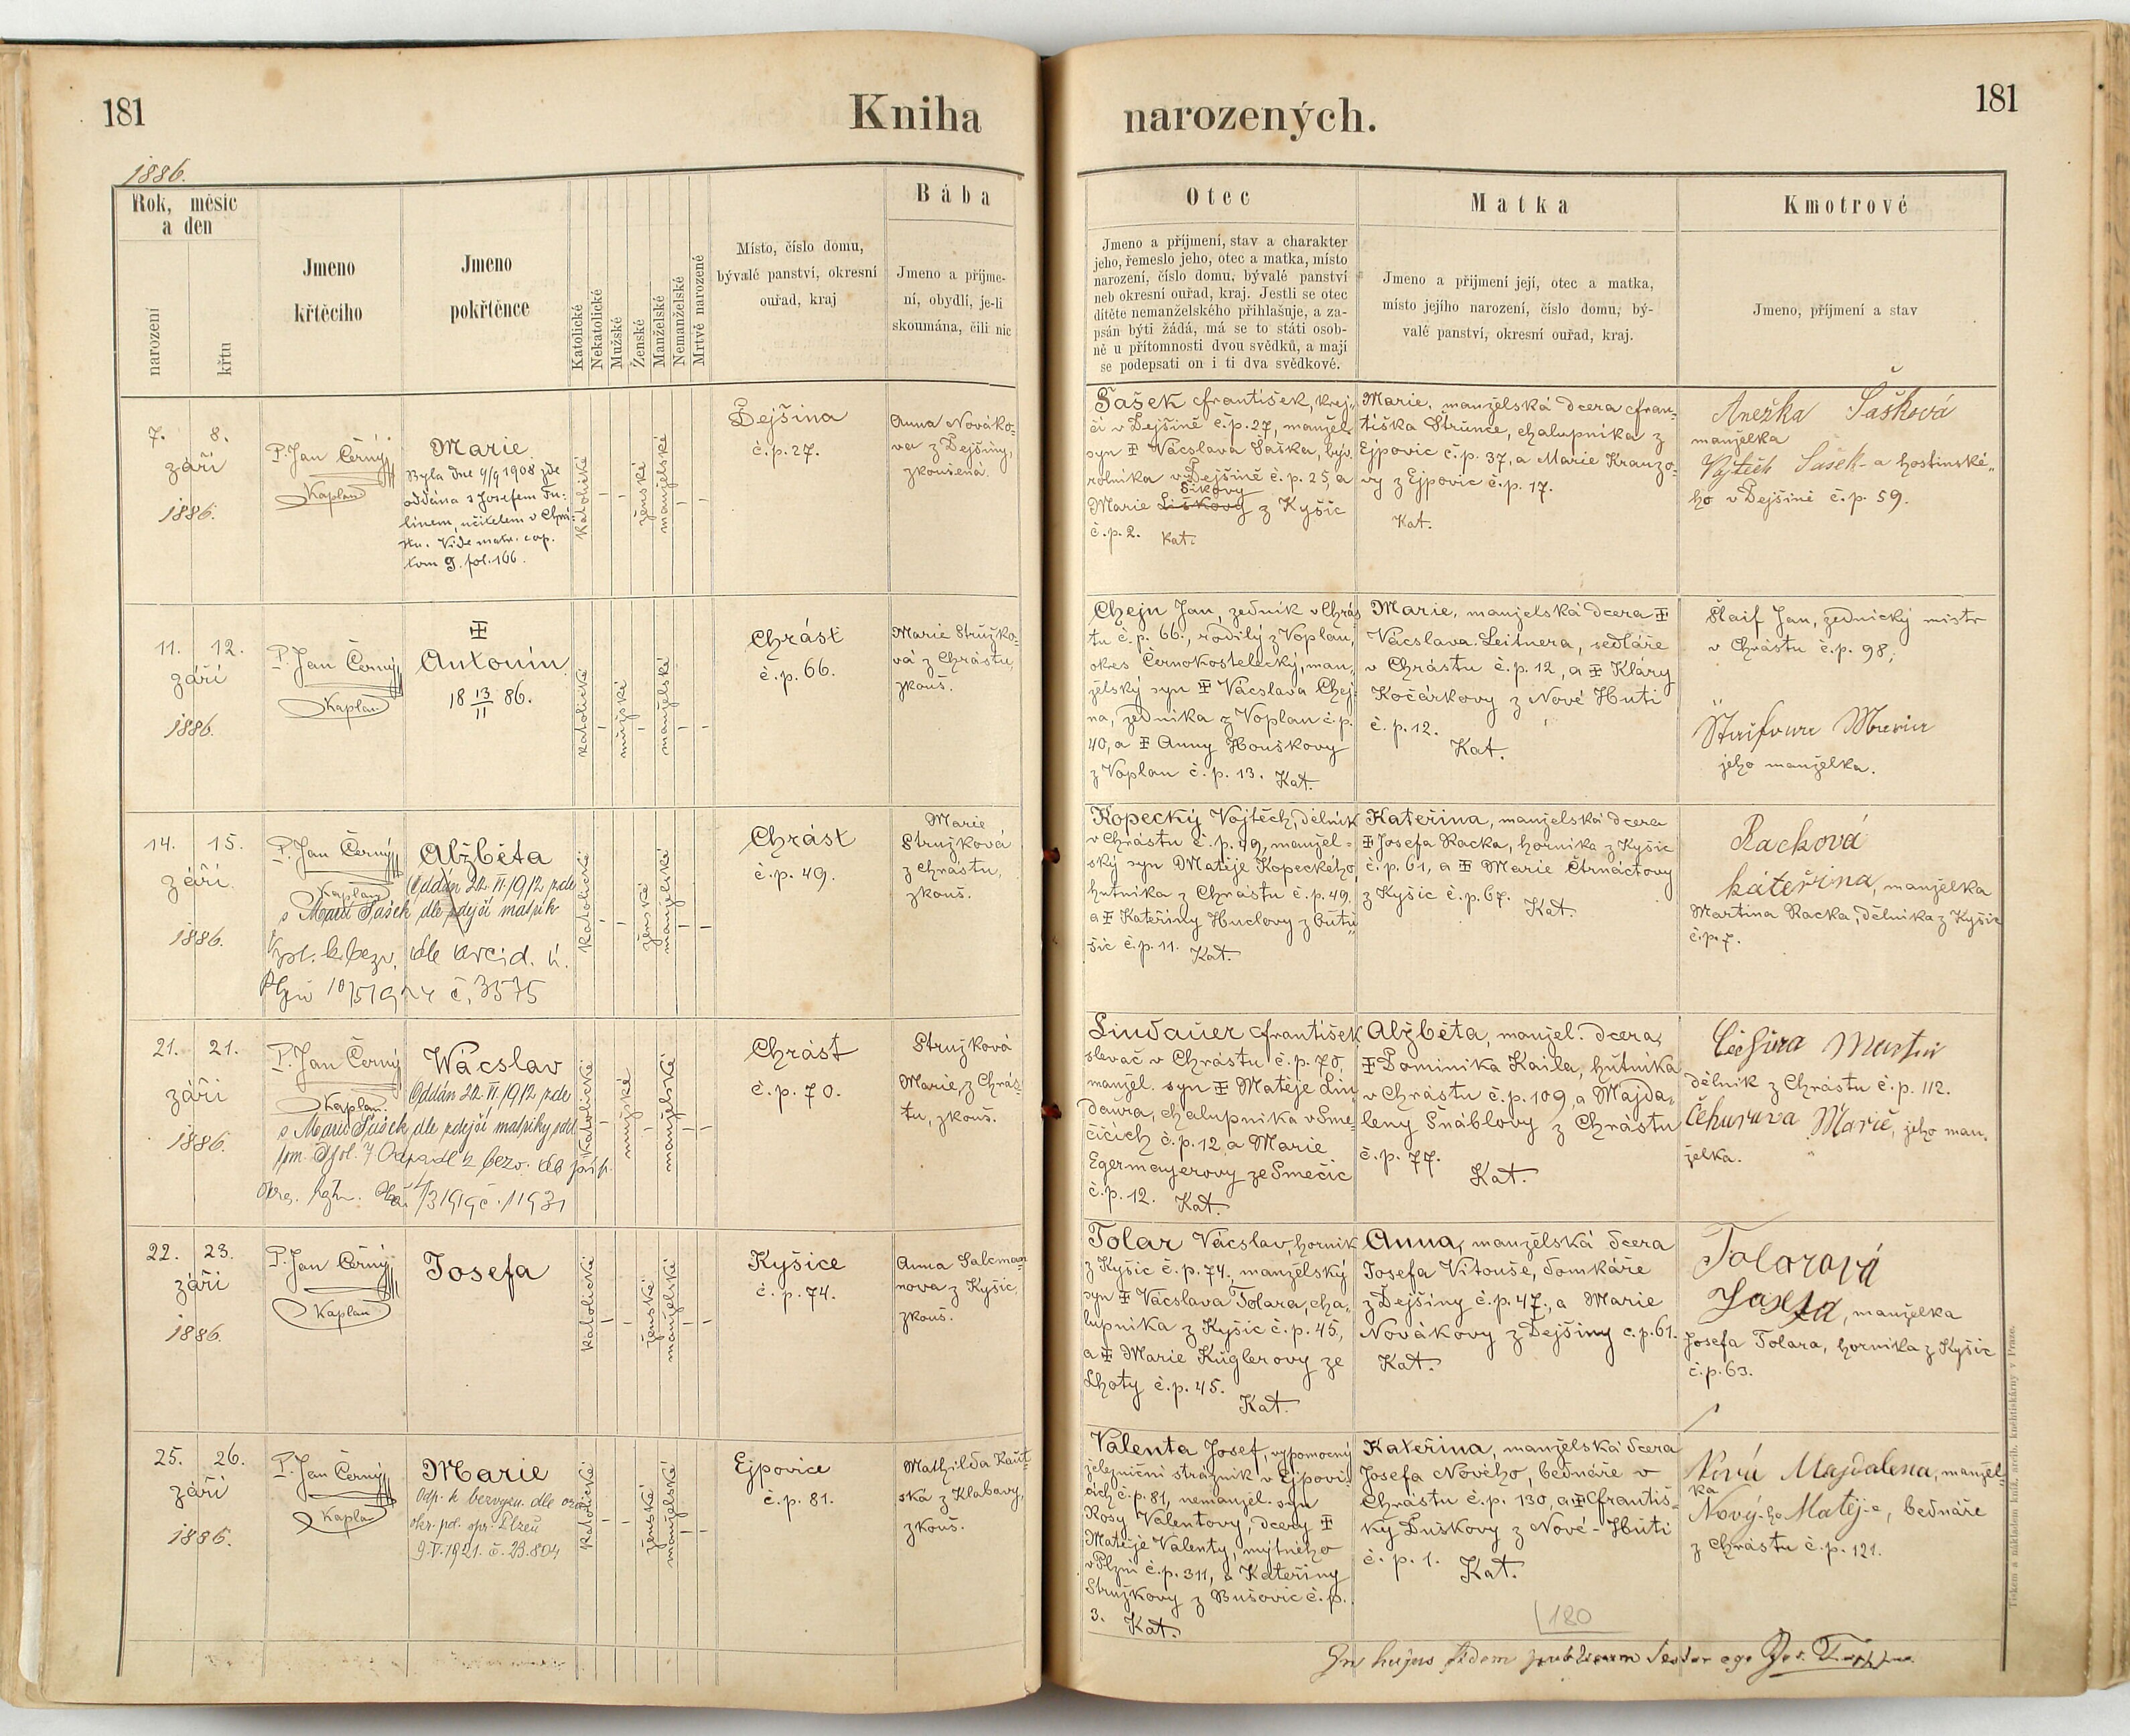 181
Kniha narozených.
181
1886.
Rok, měsíc
a den
narození
křtu
Jmeno
křtěcího
Jmeno
pokřtěnce
Katolické
Nekatolické
Mužské
Ženské
Manželské
Nemanželské
Mrtvě narozené
Místo, číslo domu,
bývalé panství, okresní
ouřad, kraj
Bába
Jmeno a příjme-
ní, obydlí, je-li
skoumána, čili nic
Otec
Jmeno a příjmení, stav a charakter
jeho, řemeslo jeho, otec a matka, místo
narození, číslo domu, bývalé panství
neb okresní ouřad, kraj. Jestli se otec
dítěte nemanželského přihlašuje, a za-
psán býti žádá, má se to státi osob-
ně u přítomnosti dvou svědků, a mají
se podepsati on i ti dva svědkové.
Matka
Jmeno a příjmení její, otec a matka,
místo jejího narození, číslo domu, bý-
valé panství, okresní ouřad, kraj.
Kmotrové
Jmeno, příjmení a stav
7. 8.
září
1886.
P. Jan Černý
Kaplan
Marie
Byla dne 9/9 1908 zde
oddána s Josefem Tu-
linem, učitelem v Chrá-
stu. Vide matr. cop.
tom 9. fol. 166.
katolické
ženské
manželské
Dejšina
č. p. 27.
Anna Nováko-
va z Dejšiny,
zkoušená.
Šašek František, krej-
čí v Dejšině č. p. 27, manžel.
syn Vácslava Šaška, býv.
rolníka v Dejšině č. p. 25, a
Šikovy
Marie Liškovy z Kyšic
č. p. 2. Kat.
Marie, manželská dcera Fran-
tiška Strunce, chalupníka z
Ejpovic č. p. 37, a Marie Kranzo-
vy z Ejpovic č. p. 17.
Kat.
Anežka Šašková
manželka
Vojtěch Šašek-a hostinské-
ho v Dejšině č. p. 59.
11. 12.
září
1886.
P. Jan Černý
Kaplan
Antonín
18 13/11 86.
katolické
mužské
manželské
Chrást
č. p. 66.
Marie Stružko-
vá z Chrástu,
zkouš.
Chejn Jan, zedník v Chrás-
tu č. p. 66., rodilý z Voplan,
okres Černokostelecký, man-
želský syn Vácslava Chej-
na, zedníka z Voplan č. p.
40, a Anny Houškovy
z Voplan č. p. 13. Kat.
Marie, manželská dcera
Vácslava Leitnera, sedláře
v Chrástu č. p. 12, a Kláry
Kočárkovy z Nové Huti
č. p. 12.
Kat.
Štaif Jan, zednický mistr
v Chrástu č. p. 98,
Marie
jeho manželka.
14. 15.
září
1886.
P. Jan Černý
Kaplan
Alžběta
Oddán 22. VI. 1912 zde
s Marií Šašek dle zdejší matrik
dle
č. 3575
katolické
ženské
manželské
Chrást
č. p. 49.
Marie
Stružková
z Chrástu,
zkouš.
Kopecký Vojtěch, dělník
v Chrástu č. p. 49, manžel-
ský syn Matěje Kopeckého,
hutníka z Chrástu č. p. 49,
a Kateřiny Huclovy z Butu-
šic č. p. 11. Kat.
Kateřina, manželská dcera
Josefa Racka, horníka z Kyšic
č. p. 61, a Marie Čtrnáctovy
z Kyšic č. p. 67. Kat.
Racková
Kateřina, manželka
Martina Racka, dělníka z Kyšic
č. p. 7.
21. 21.
září
1886.
P. Jan Černý
Kaplan.
Wácslav
Oddán 22. VI. 1912 zde
s Marií Šašek, dle zdejší matriky odd.
katolické
mužské
manželské
Chrást
č. p. 70.
Stružková
Marie, z Chrás-
tu, zkouš.
Lindauer František,
slevač v Chrástu č. p. 70,
manžel. syn Matěje Lin-
daura, chalupníka v Sme-
čicích č. p. 12, a Marie
Egermayerovy ze Smečic
č. p. 12. Kat.
Alžběta, manžel. dcera
Dominika Kaila, hutníka
v Chrástu č. p. 109, a Majda-
leny Šnáblovy z Chrástu
č. p. 77.
Kat.
Martin
dělník z Chrástu č. p. 112.
Marie, jeho man-
želka.
22. 23.
září
1886.
P. Jan Černý
Kaplan
Josefa
katolické
ženské
manželské
Kyšice
č. p. 74.
Anna Salcman-
nova z Kyšic,
zkouš.
Tolar Vácslav, horník
z Kyšic č. p. 74., manželský
syn Vácslava Tolara, cha-
lupníka z Kyšic č. p. 45,
a Marie Küglerovy ze
Lhoty č. p. 45.
Kat.
Anna, manželská dcera
Josefa Vitouše, domkáře
z Dejšiny č. p. 47., a Marie
Novákovy z Dejšiny č. p. 61.
Kat.
Tolarová
Josefa, manželka
Josefa Tolara, horníka z Kyšic
č. p. 63.
25. 26.
září
1886.
P. Jan Černý
Kaplan
Marie
Odp. k bezvyzn. dle ozn.
okr. pol. spr. Plzeň
9. V. 1921. č. 23.804
katolické
ženské
manželské
Ejpovice
č. p. 81.
Mathilda Raut-
ská z Klabavy,
zkouš.
Valenta Josef, výpomocný
železniční strážník v Ejpovi-
cích č. p. 81, nemanžel. syn
Rosy Valentovy, dcery
Matěje Valenty, mýtného
v Plzni č. p. 311, a Kateřiny
Stružkovy z Bušovic č. p.
3. Kat.
Kateřina, manželská dcera
Josefa Nového, bednáře v
Chrástu č. p. 130, a Františ-
ky Duškovy z Nové-Huti
č. p. 1. Kat.
Nová Majdalena, manžel-
ka
Nový-ho Matěj-e, bednáře
z Chrástu č. p. 121.
180
In hujus fidem publicam testor ego Jos.
Tiskem a nákladem kníž. arcib. knihtiskárny v Praze.